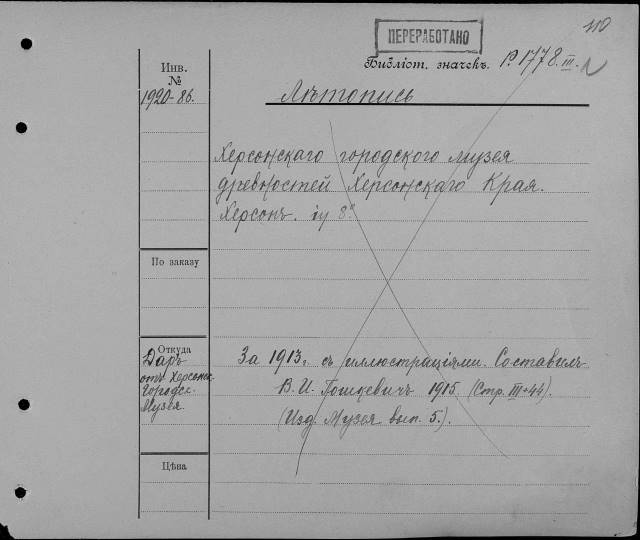 110
ПЕРЕРАБОТАНО
Библіот. значекъ. P. 1778.III.
Инв.
№
1920-86.
Лѣтопись
Херсонскаго городского музея
древностей Херсонскаго Края.
Херсонъ. іп 8°
По заказу
Откуда
Даръ
отъ Херсонск.
Городск.
Музея.
За 1913г. съ иллюстраціями. Составилъ
В. И. Гошкевичъ 1915. (Стр. III+44).
(Изд. Музея вып. 5.).
Цѣна